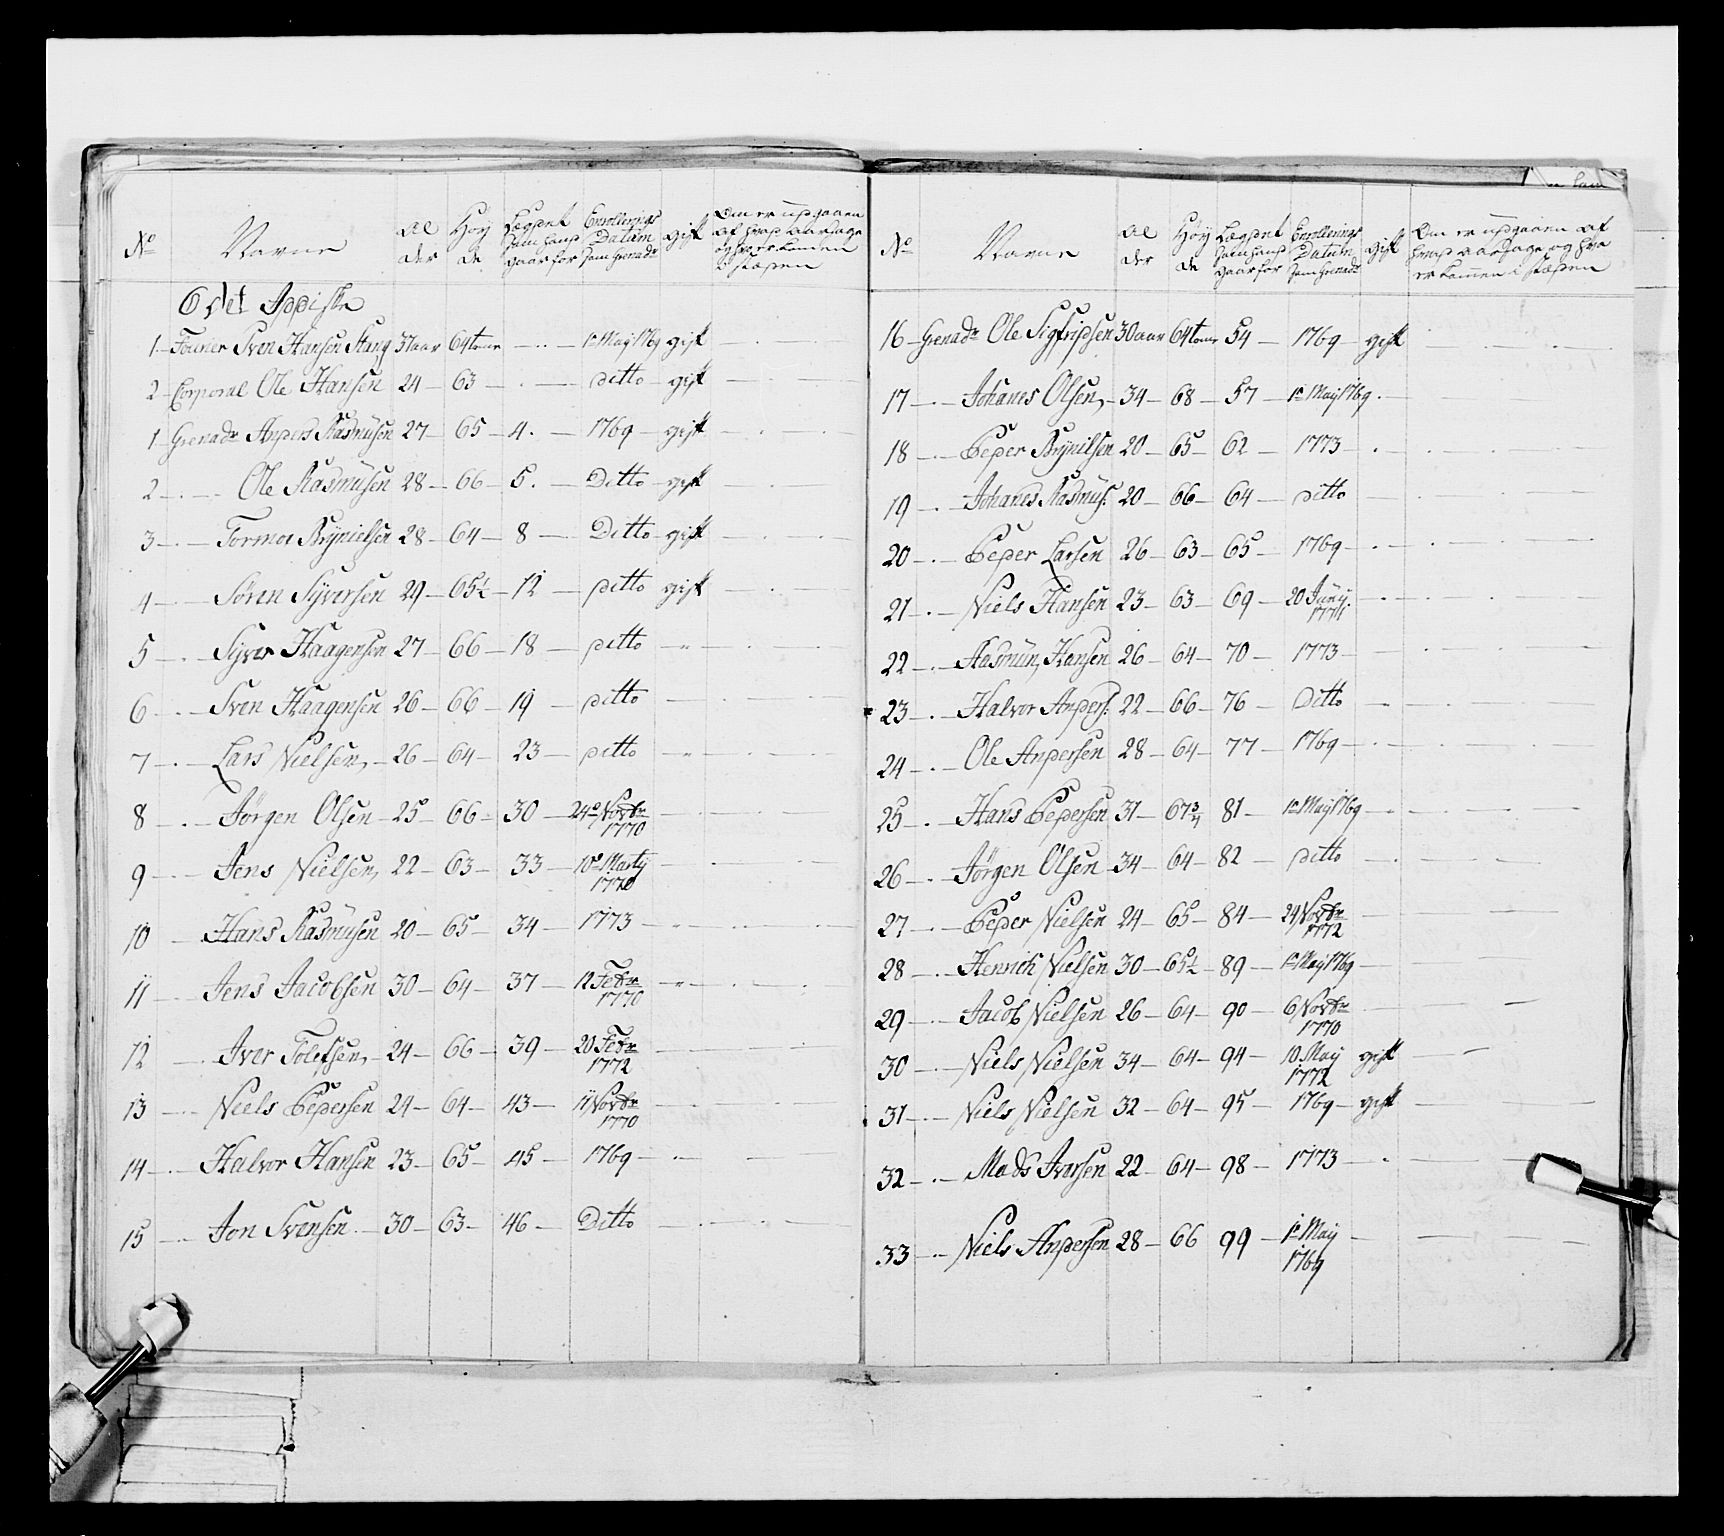 No Navne Al der Höy de Lægdet ham hand gaar for Enrollerings Datum som Grenadr gift Om er udgaaen af hvad aarsage og hvor kommen i stæden
1 Fourier Sven Hansen Stang 37 aar 64 tomr 1e Maij 1769 gift
2 Corporal Ole Hansen 24 63 ditto gift
1 Grenadr Anders Rasmusen 27 65 4 1769 gift
2 Ole Rasmüsen 28 66 5 Ditto gift
3 Tormoe Brÿnielsen 28 64 8 Ditto gift
4 Sören Sÿversen 29 65½ 12 ditto gift
5 Sÿver Haagensen 27 66 18 ditto
6 Sven Haagensen 26 66 19 ditto
7 Lars Nielsen 26 64 23 ditto
8 Jörgen Olsen 25 66 30 24e Novbr 1770
9 Jens Nielsen 22 63 33 10e Martij 1770
10 Hans Rasmüsen 20 65 34 1773
11 Jens Jacobsen 30 64 37 12 Febr 1770
12 Iver Tolefsen 24 66 39 20 Febr 1772
13 Niels Pedersen 24 64 43 11 Novbr 1770
14 Halvor Hansen 23 65 45 1769
15 Jon Svensen 30 63 46 Ditto
No Navne Al der Höy de Lægdet ham hand gaar for Enrollerings Datum som Grenadr gift Om er udgaaen af hvad aarsage og hvo er kommen i stæden
16 Grenadr Ole Sigfridsen 30 aar 64 tomr 54 1769 gift
17 Johanes Olsen 34 68 57 1e Maij 1769
18 Peder Brÿnilsen 20 65 62 1773
19 Johanes Rasmüs: 20 66 64 ditto
20 Peder Larsen 26 63 65 1769
21 Niels Hansen 23 63 69 20 Junij 1771
22 Rasmün Hansen 26 64 70 1773
23 Halvor Anders: 22 66 76 Ditto
24 Ole Andersen 28 64 77 1769
25 Hans Pedersen 31 67¾ 81 1e Maij 1769
26 Jörgen Olsen 34 64 82 ditto
27 Peder Nielsen 24 65 84 24 Novbr 1772
28 Henrich Nielsen 30 65½ 89 1e Maij 1769
29 Jacob Nielsen 26 64 90 6 Novbr 1770
30 Niels Nielsen 34 64 94 10 Maij 1772 gift
31 Niels Nielsen 32 64 95 1769 gift
32 Mads Iversen 22 64 98 1773
33 Niels Andersen 28 66 99 1e Maij 1769